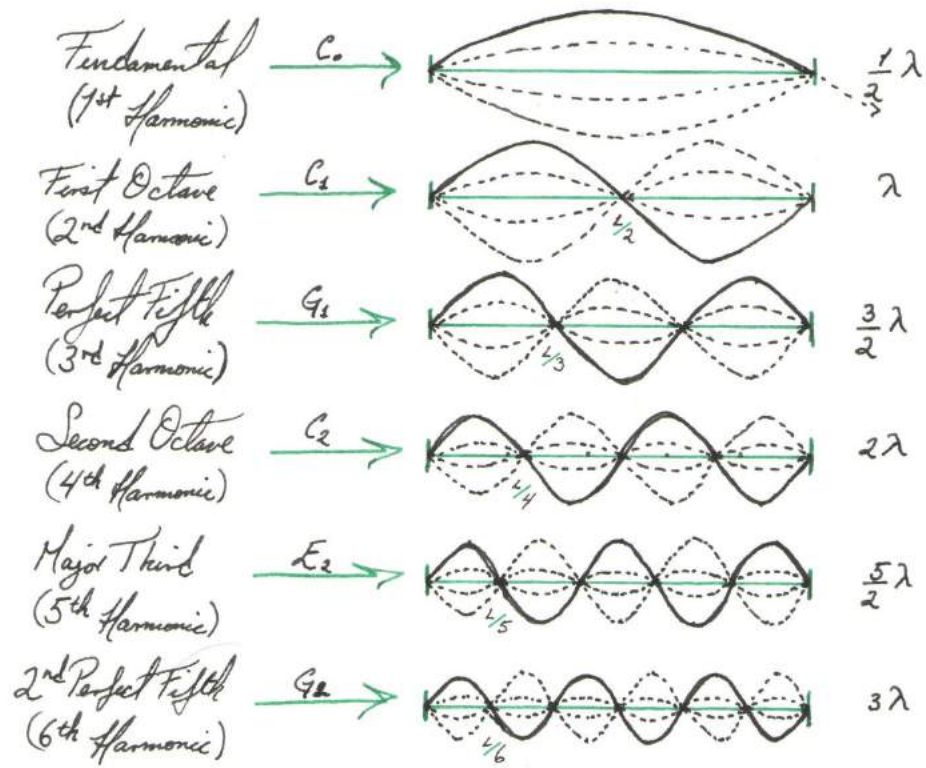 Fundamental
(1st Harmonic)
C₀
1/2 λ
First Octave
(2nd Harmonic)
C₁
L/2
λ
Perfect Fifth
(3rd Harmonic)
G₁
L/3
3/2 λ
Second Octave
(4th Harmonic)
C₂
L/4
2λ
Major Third
(5th Harmonic)
E₂
L/5
5/2 λ
2nd Perfect Fifth
(6th Harmonic)
G₂
L/6
3λ